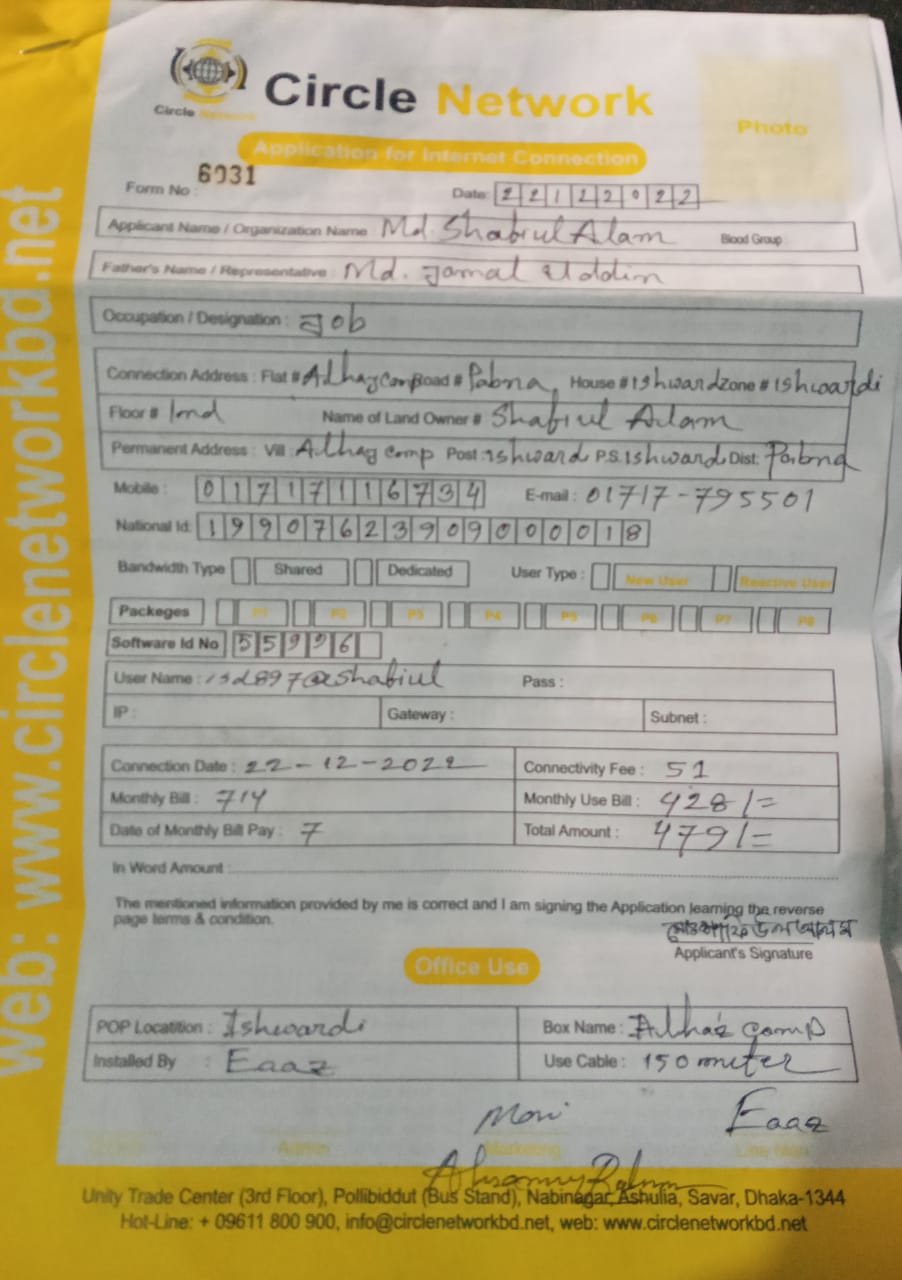 Circle Network
Circle Network
Photo
Application for Internet Connection
Form No : 6031
Date: 22122022
Applicant Name / Organization Name : Md. Shabiul Alam Blood Group :
Father's Name / Representative : Md. Jamal Uddin
Occupation / Designation : Job
Connection Address : Flat # Alhaz Comp Road # Pabna, House # Ishwardi Zone # Ishwardi
Floor # Name of Land Owner # Shabiul Alam
Permanent Address : Vill: Alhaz Comp Post: Ishwardi P.S. Ishwardi Dist: Pabna
Mobile : 01717116734 E-mail : 01717-795501
National Id: 19907623909000018
Bandwidth Type Shared Dedicated User Type : New User Reactive User
Packeges P1 P2 P3 P4 P5 P6 P7 P8
Software Id No 55996
User Name : @shabiul Pass :
IP : Gateway : Subnet :
Connection Date : 22-12-2022 Connectivity Fee : 51
Monthly Bill : 714 Monthly Use Bill : 428/=
Date of Monthly Bill Pay : 7 Total Amount : 479/=
In Word Amount :
The mentioned information provided by me is correct and I am signing the Application learning the reverse
page terms & condition.
মোঃ শাফিউল আলম
Applicant's Signature
Office Use
POP Locatition : Ishwardi Box Name : Alhaz Comp
Installed By : Eaaz Use Cable : 150 miter
Moni Eaaz
Admin Marketing Line Man
Unity Trade Center (3rd Floor), Pollibiddut (Bus Stand), Nabinagar, Ashulia, Savar, Dhaka-1344
Hot-Line: + 09611 800 900, info@circlenetworkbd.net, web: www.circlenetworkbd.net
web: www.circlenetworkbd.net